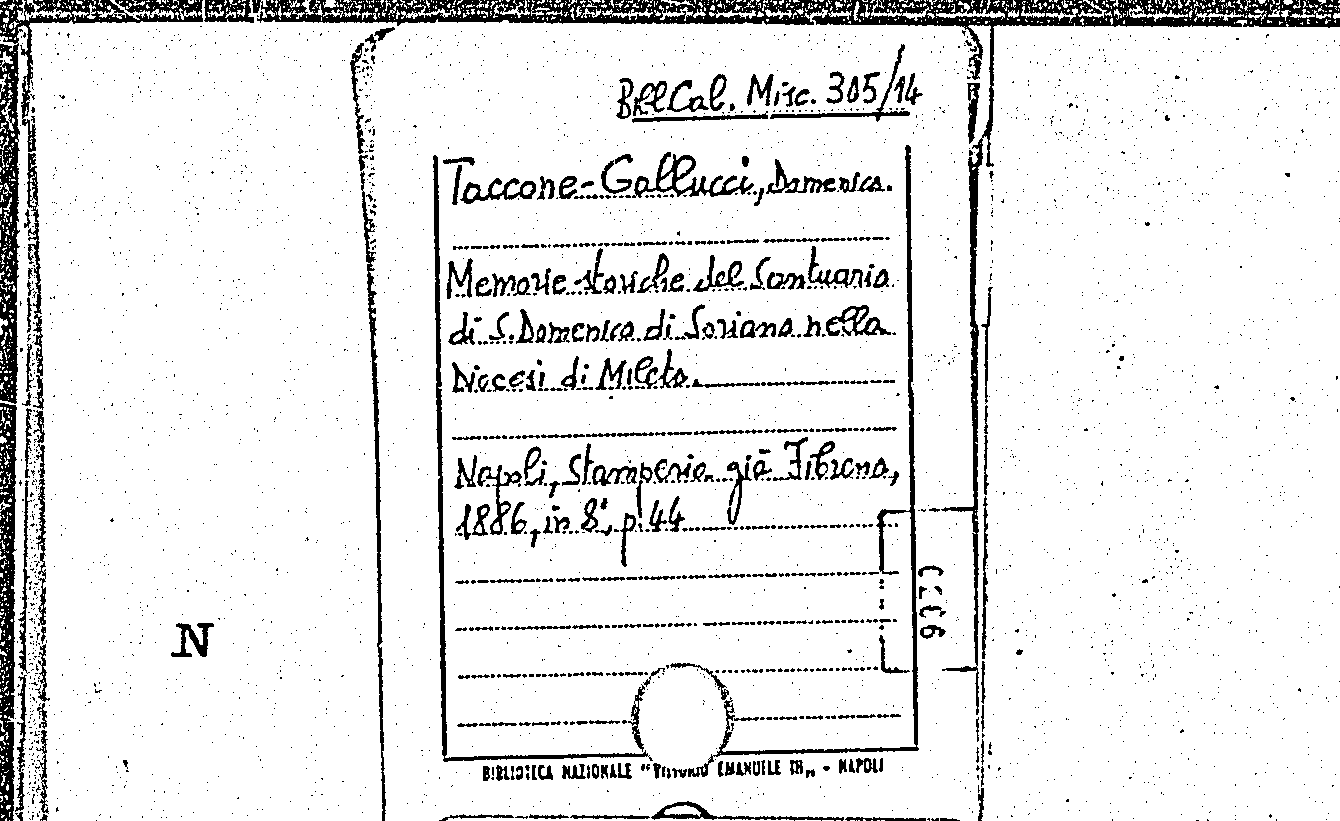 Bibl. Cal. Misc. 305/14
Taccone-Gallucci, Domenico.
Memorie storiche del Santuario
di S. Domenico di Soriano nella
Diocesi di Mileto.
Napoli, Stamperia già Fibreno,
1886, in 8°, p. 44
N
BIBLIOTECA NAZIONALE "VITTORIO EMANUELE III" - NAPOLI